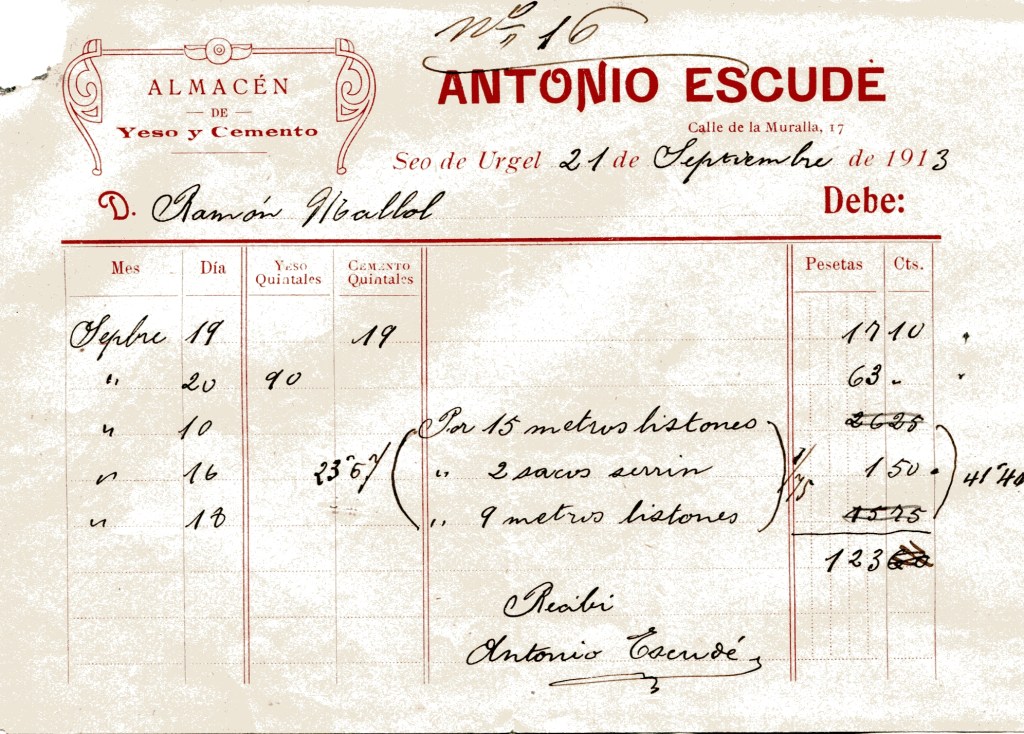 Nº 16
ALMACÉN
DE
Yeso y Cemento
ANTONIO ESCUDÉ
Calle de la Muralla, 17
Seo de Urgel 21 de Septiembre de 1913
D. Ramón Mallol
Debe:
Mes Día Yeso Quintales Cemento Quintales Pesetas Cts.
Sepbre 19 19 17 10
" 20 90 63 "
" 10 Por 15 metros listones 26 25
" 16 " 2 sacos serrin 1 50
" 18 " 9 metros listones 15 75
1/75
41'40
123
Recibi
Antonio Escudé